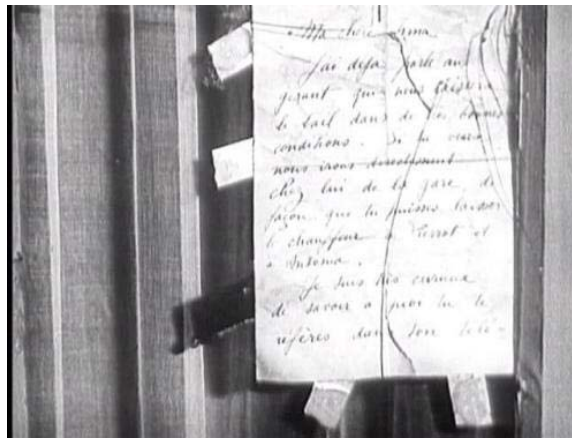 Ma chère
J'ai déjà parlé au
gérant qui nous laissera
le bail dans de bonnes
conditions. Si tu veux
nous irons directement
chez lui de la gare, de
façon que tu puisses laisser
le chauffeur à et
à
Je suis très
de savoir à quoi tu te
réfères dans ton télé-